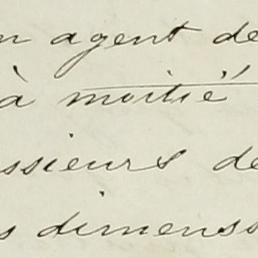 n agent de
à moitié
ssieurs de
s dimenso